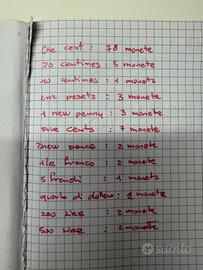 One cent : 78 monete
20 centimes : 5 monete
10 centimes : 1 moneta
una peseta : 3 monete
1 new penny : 3 monete
five cents : 7 monete
2 new pence : 2 monete
1/2 franco : 2 monete
5 franchi : 1 moneta
quarto di dollaro : 2 monete
200 lire : 2 monete
500 lire : 2 monete
subito